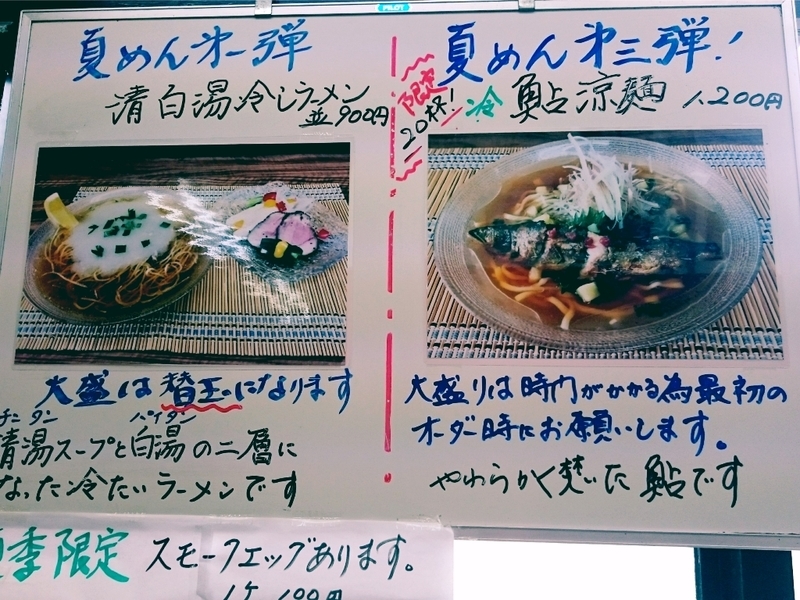 PILOT
夏めん第一弾
清白湯冷しラーメン
並900円
大盛は替玉になります
チンタン パイタン
清湯スープと白湯の二層に
なった冷たいラーメンです
夏めん第三弾!
限定
20杯!
冷 鮎涼麺 1,200円
大盛りは時間がかかる為最初の
オーダー時にお願いします。
やわらかく焚いた鮎です
夏季限定 スモークエッグあります。
1ヶ 100円